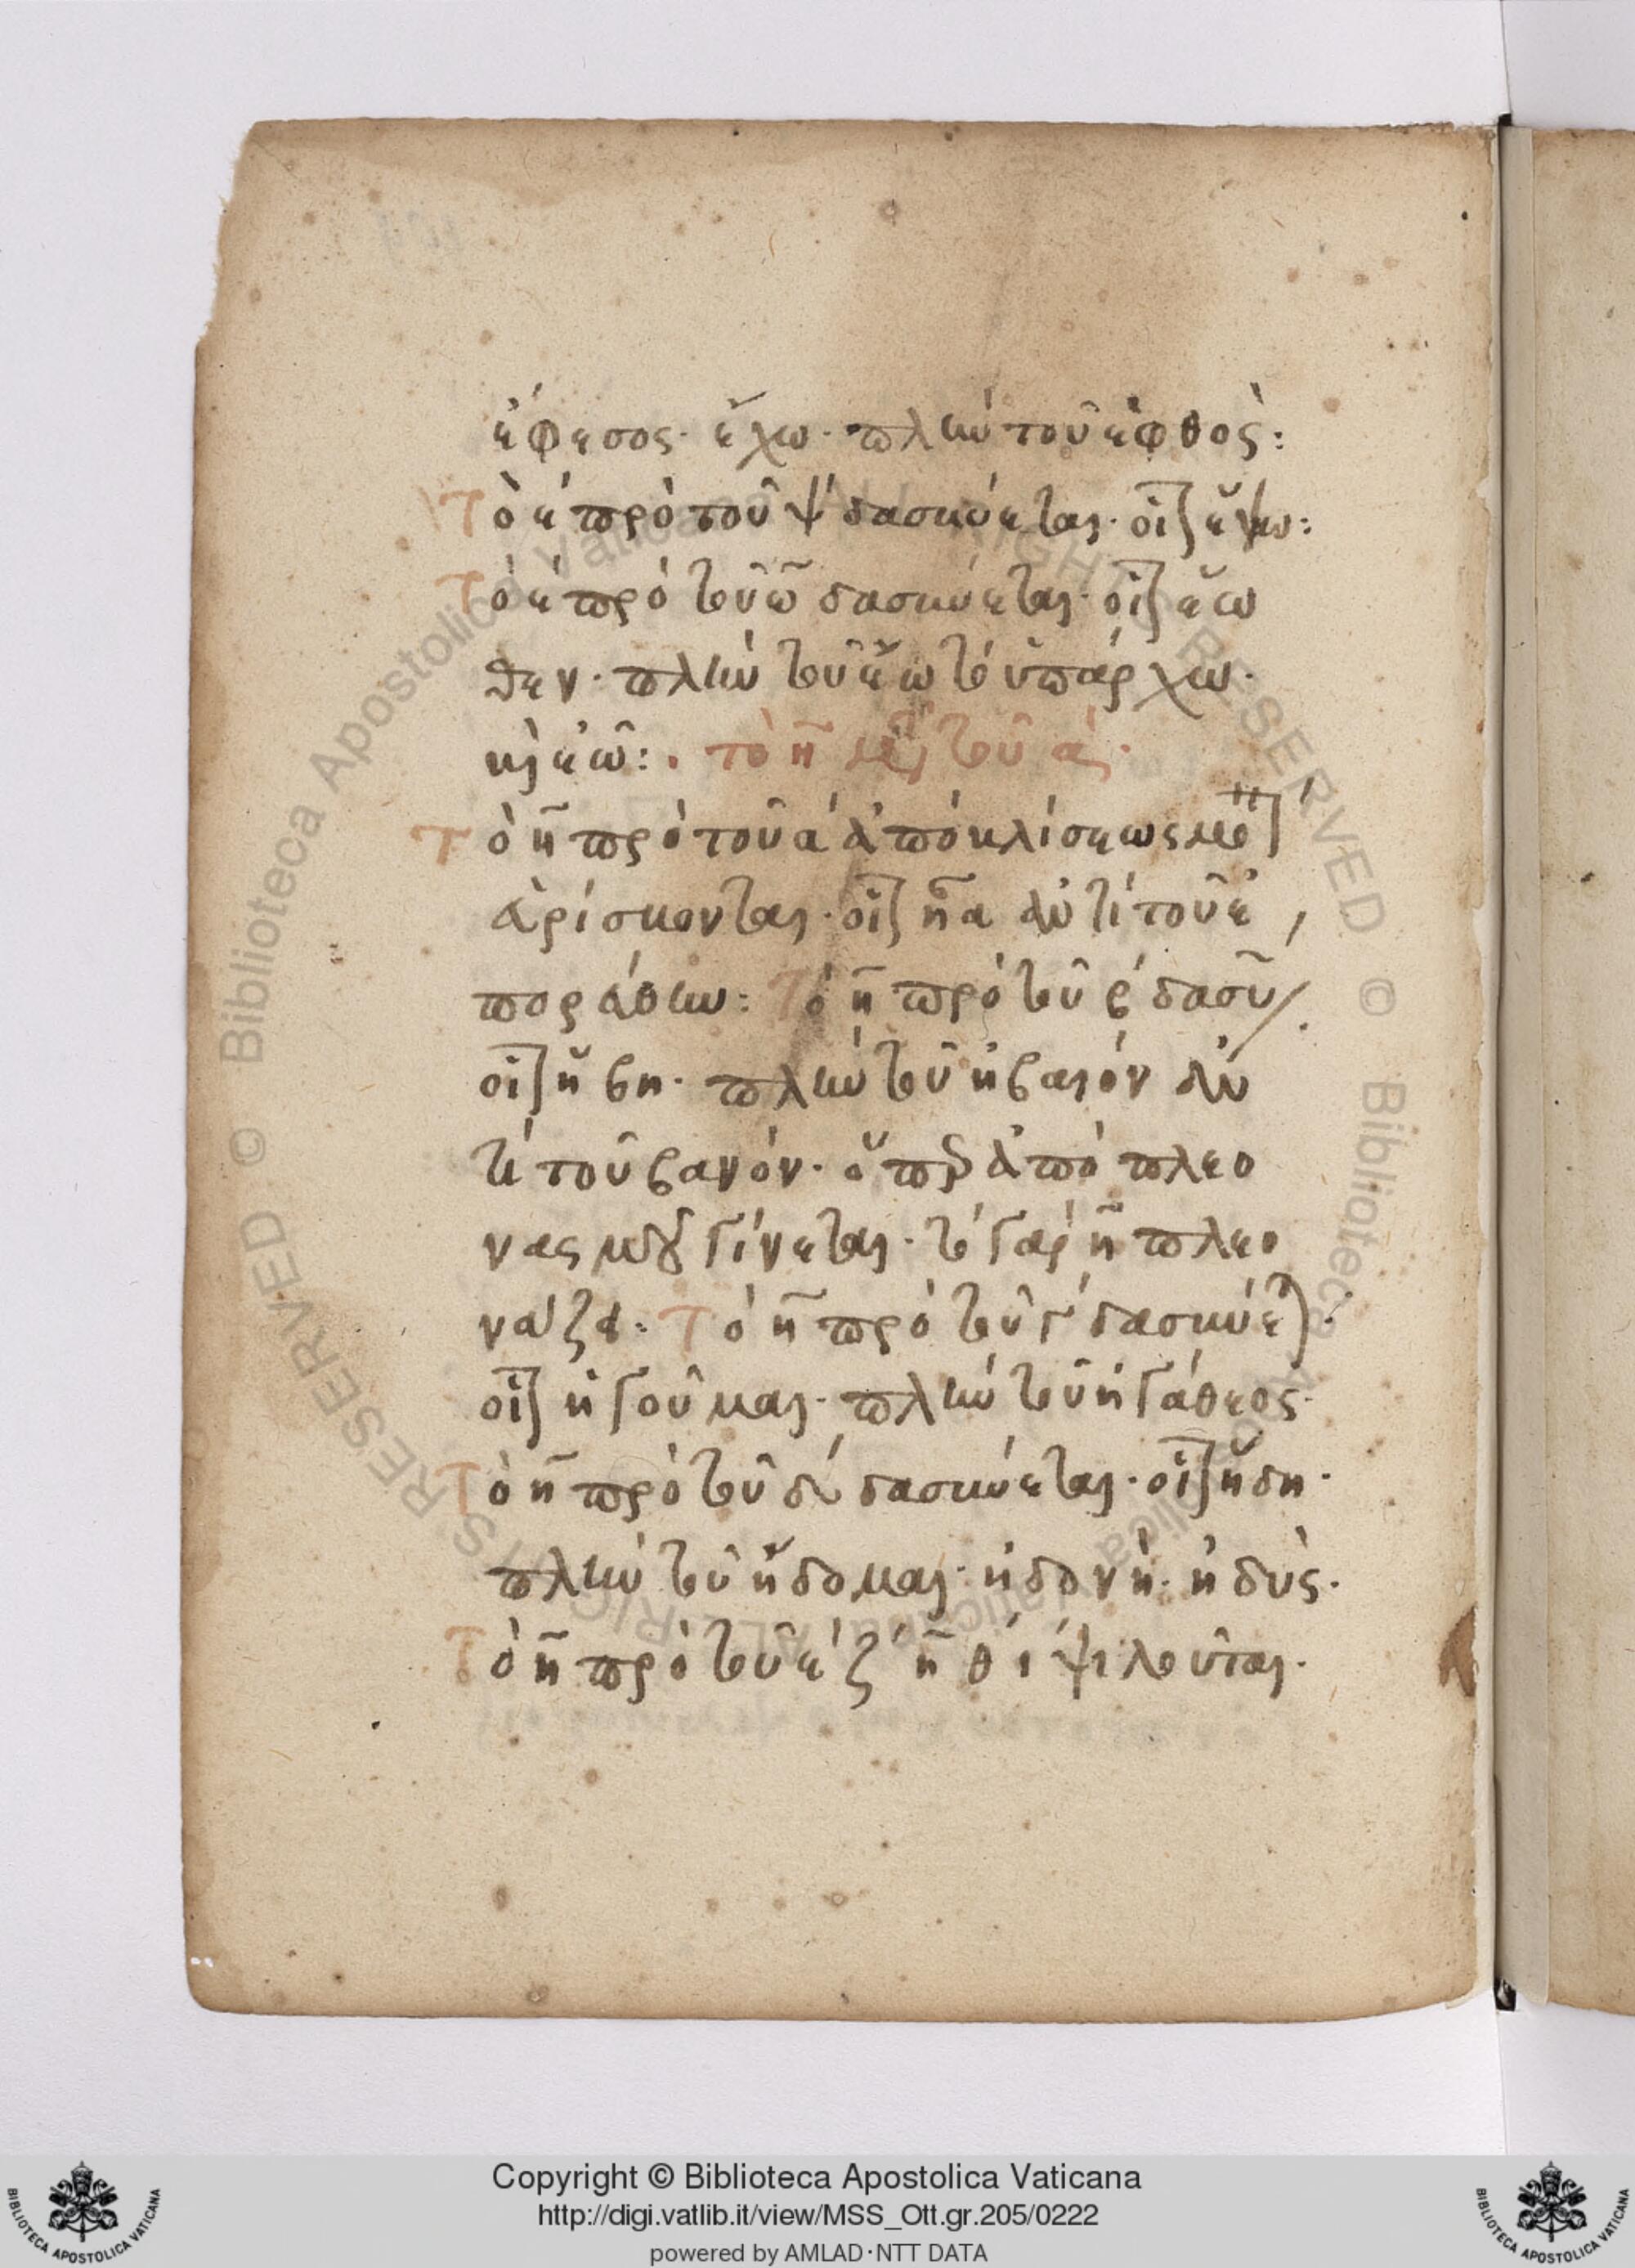 ἔφεσος· ἔχω· πλὴν τοῦ ἑφθός:
Τὸ ε πρὸ τοῦ ψ δασύνεται· οἷον ἕψω:
Τὸ ε πρὸ τοῦ ω δασύνεται· οἷον ἕω
θεν· πλὴν τοῦ ἔω τὸ ὑπάρχω·
καὶ ἐῶ: · τὸ η μετὰ τοῦ α·
Τὸ η πρὸ τοῦ α ἀπὸ κλίσεως
οἷον ἦα ἀντὶ τοῦ ἐ
πορεύθην: Τὸ η πρὸ τοῦ β δασύ
οἷον ἥβη· πλὴν τοῦ ἠβαιόν ἀν
τὶ τοῦ βαιόν· ὅπερ ἀπὸ πλεο
νασμοῦ γίνεται· τὸ γὰρ η πλεο
νάζει· Τὸ η πρὸ τοῦ γ δασύνεται·
οἷον ἡγοῦμαι· πλὴν τοῦ ἠγάθεος·
Τὸ η πρὸ τοῦ δ δασύνεται· οἷον ἤδη·
πλὴν τοῦ ἥδομαι· ἡδονή· ἡδύς·
Τὸ η πρὸ τοῦ ε ζ η θ ι ψιλοῦται·
Copyright © Biblioteca Apostolica Vaticana
http://digi.vatlib.it/view/MSS_Ott.gr.205/0222
powered by AMLAD·NTT DATA